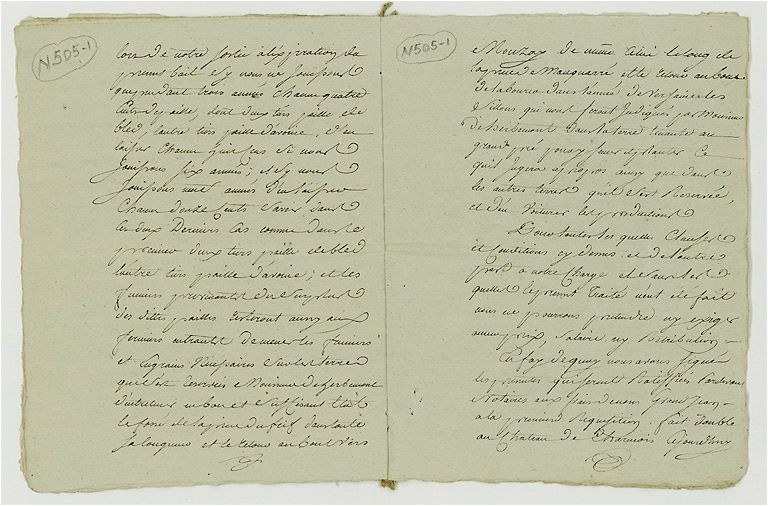 N505-1
lors de notre sortie a l'expiration du
premier bail et sy nous ne jouissons
que pendant trois années chacun quatre
cents de paille, dont deux tiers paille de
bled, l'autre tiers paille d'avoine, d'en
laisser chacun six cens si nous
jouissons six années; et sy nous
jouissons neuf années d'en laisser
chacun douze cents savoir dans
les deux derniers cas comme dans le
premier deux tiers paille de bled
l'autre tiers paille d'avoine; et les
fumiers provenants de
des dittes pailles resteront aussy aux
fermiers entrants de mener les fumiers
et engrais nécessaires sur les terres
que s'est réservées Monsieur de herbemont
d'entretenir en bon et suffisant état
le fossé de la du fief dans toute
sa longueur et le long au bout vers
N505-1
Mouzay de même celui le long de
la de Mauquarré et le long au bout
de labourer dans l'année de les
sillons qui nous seront indiqués par Monsieur
de herbemont dans la terre tenante au
grand pré pour y planter ce
qu'il jugera apropos ainsy que dans
les autres terres qu'il s'est Réservées,
et d'en voiturer les productions
Dont toutes les quelles clauses
et conditions cy dessus et de l'autre
part a notre charge et sans les
quelles le présent traité n'eut été fait
nous ne pourrons prétendre ny exiger
aucun prix, salaire ny Retribution –
En foy de quoy nous avons signé
les présentes qui seront Ratiffiées pardevant
Notaires aux frais de nous grand jean –
a la premiere Requisition. fait double
au Chateau de Charmois